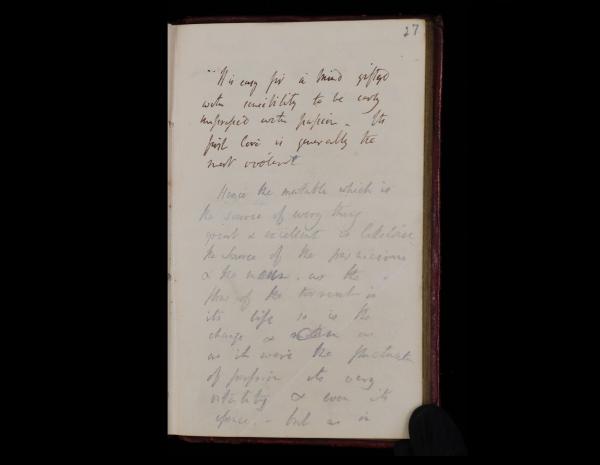 27
"It is easy for a mind gifted
with sensibility to be early
impressed with passion – Its
first Love is generally the
most violent
Hence the mutable which is
the source of every thing
great & excellent is likewise
the source of the pernicious
& the mean. as the
flow of the torrent is
its life so is the
change & as
as it were the fluctuation
of passion its very
vitality & even its
– but as in